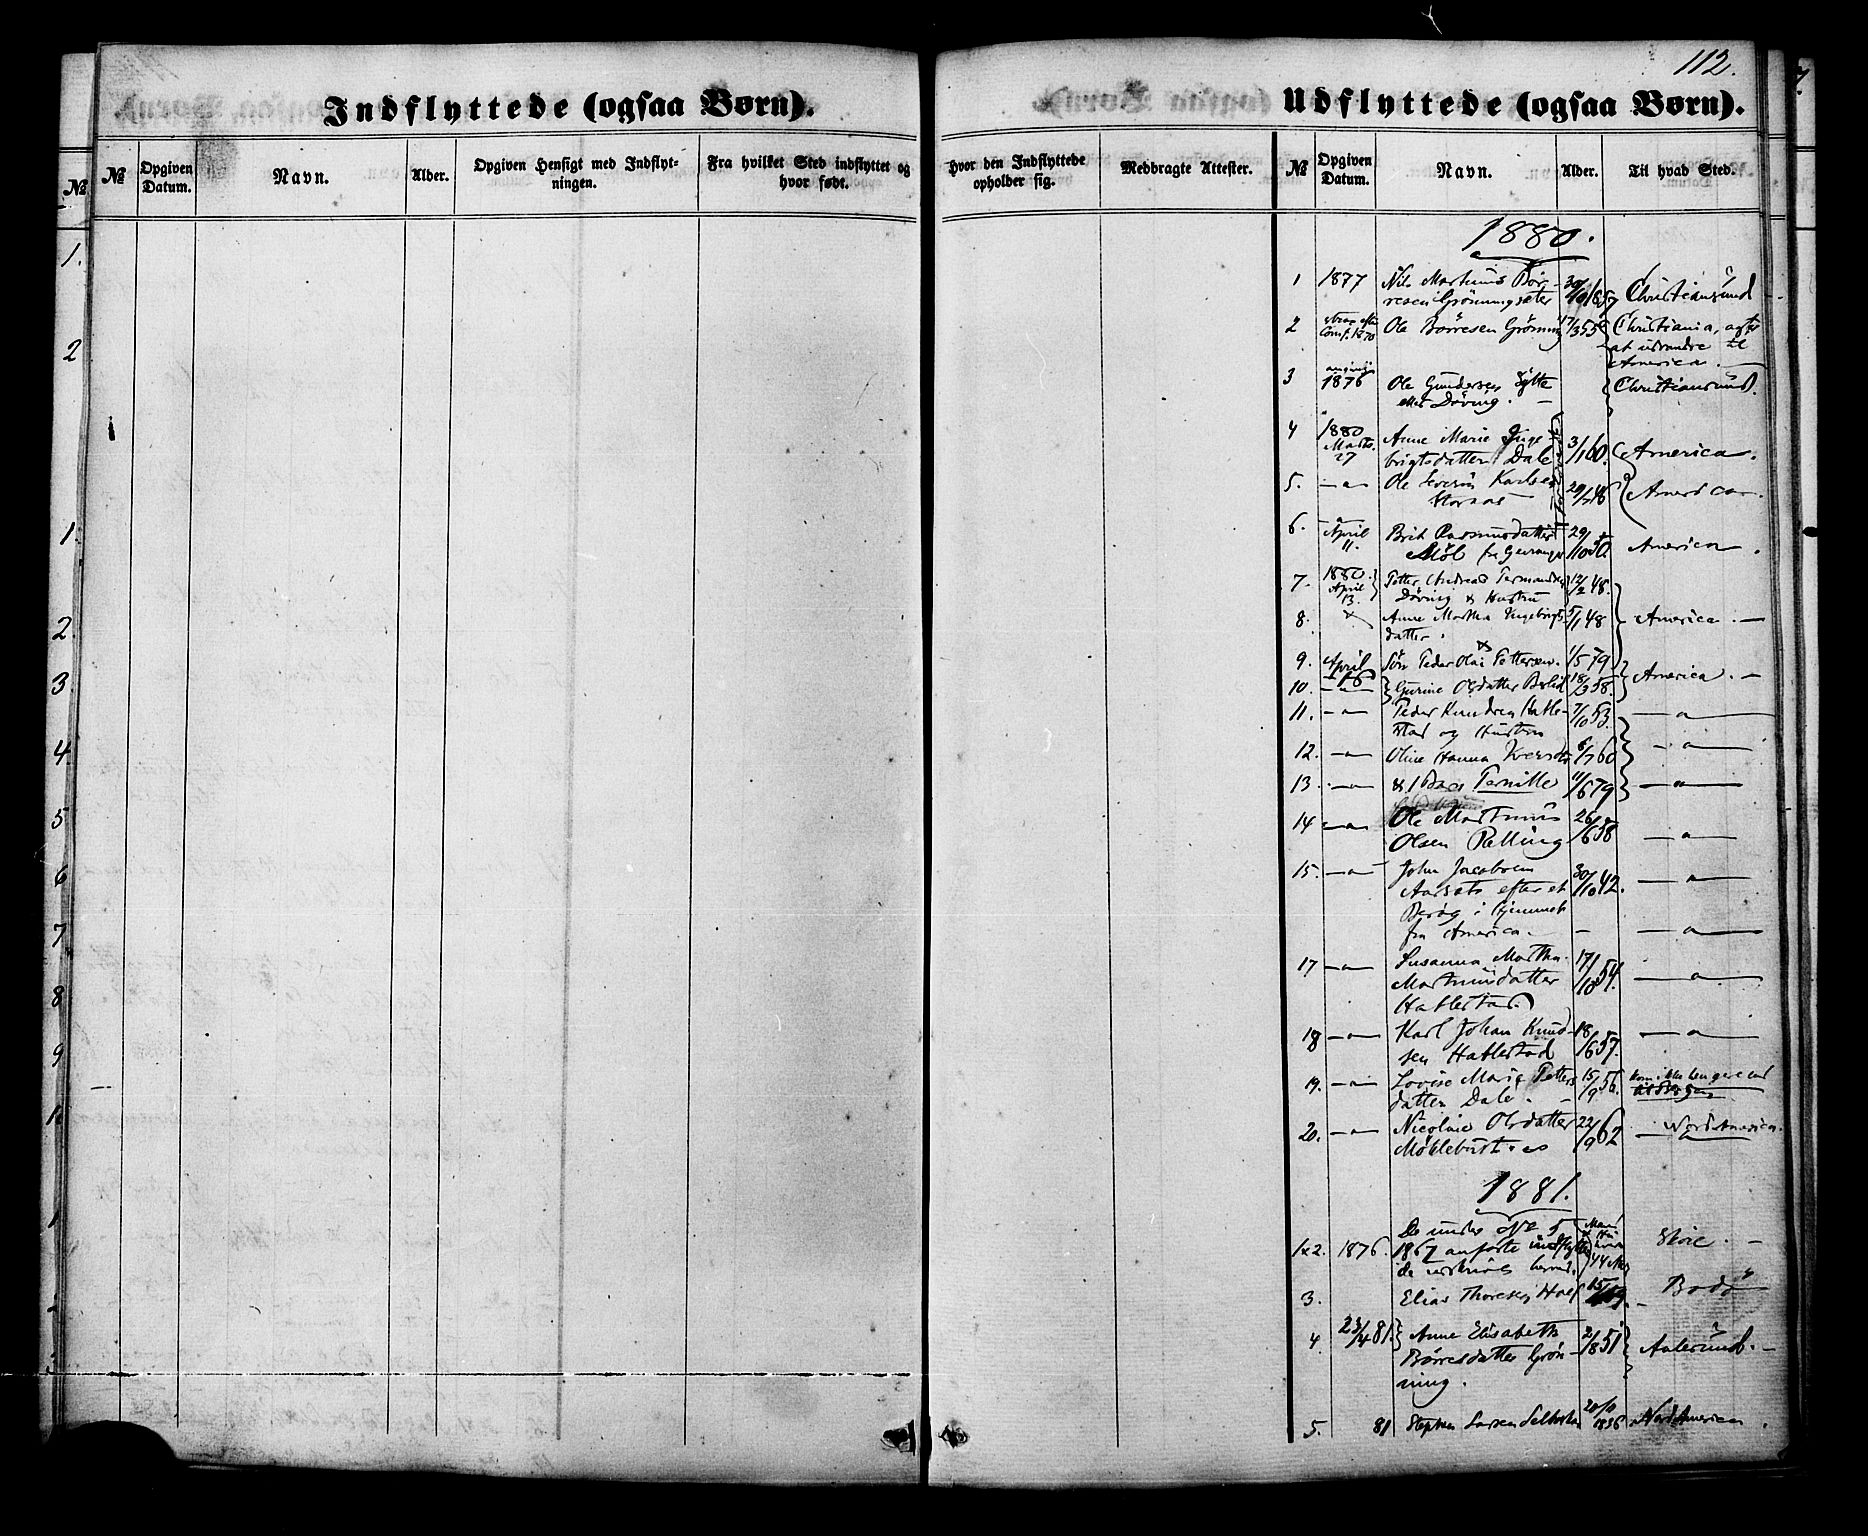 112.
Indflyttede (ogsaa Børn).
№ Opgiven Datum. Navn. Alder. Opgiven Hensigt med Indflytningen. Fra hvilket Sted indflyttet og hvor født.
Hvor den Indflyttede opholder sig. Medbragte Attester.
Udflyttede (ogsaa Børn).
№ Opgiven Datum. Navn. Alder. Til hvad Sted.
№
1.
2
1.
2.
3
4
5
6
7
8
9
1880.
1 1877 Nils Martinus Bør-
resen Grönningsæter 30/10 1857 Christiansund
2 strax efter
Conf. 1870 Ole Børresen Grönning 17/3 55 Christiania, agter
at udvandre til
America.
3 1876 Ole Gundersen
eller Döving. Christiansund.
4 1880
Marts
27 Anne Marie Inge-
brigtsdatter Dale 3/1 60. America.
5. —"— Ole Severin Karlsen
20/7 48 America.
6. April
11. Brit Rasmusdatter
fra Geiranger 29/10 50. America.
7. 1880.
April
13. Petter Andreas
Döving & Hustru 12/2 48.
8. Anne Martha Ingebrigts-
datter. 5/1 48 America. —
9. April
16 Søn Peder Olai Pettersen. 1/5 79
10. —"— Gurine Olsdatter 18/3 58. America. —
11. —"— Peder Knudsen Hatle-
stad og Hustru 7/10 53. —"—
12. —"— Oline Hanna 6/7 60 —"—
13. —"— & 1 Barn Pernille 11/6 79 —"—
14 —"— Ole Martinus
Olsen Relling 26/6 58 —"—
15. —"— John Jacobsen
Aarsæt efter et
Besøg i Hjemmet
fra America. 30/10 42. —"—
—"—
17 —"— Susanna Martha
Martinusdatter
Hatlestad 17/10 54. —"—
18 —"— Karl Johan Knud-
sen Hatlestad 18/6 57. —"—
19. —"— Lovise Marie Petters-
datter Dale. 15/9 56. Kom ikke længere end
til Bergen
20. —"— Nicoline Olsdatter
Möklebust. 22/9 62 — Nord America.
1881.
1&2. 1876. De under № 5
1867 anførte indflytte-
de Skoie. —
3. Elias Thoresen Bodø
4 23/4 81. Anne Elisabeth
Børresdatter Grön-
ning. 2/8 51 Aalesund. —
5. 81 Stephen Larsen 20/10
1836 Nord America.